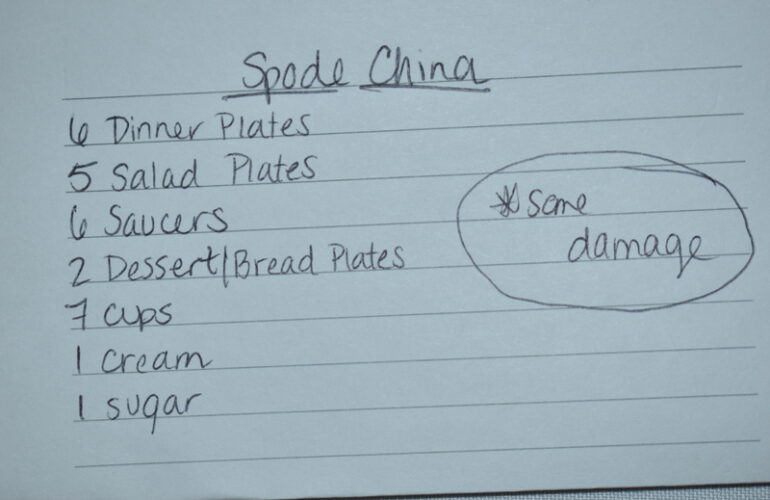 Spode China
6 Dinner Plates
5 Salad Plates
6 Saucers
2 Dessert/Bread Plates
7 cups
1 cream
1 sugar
* some
damage